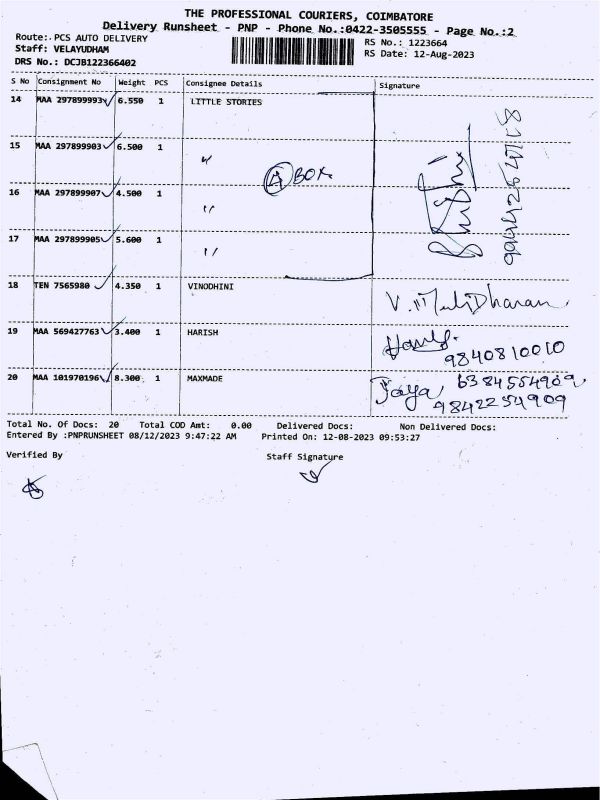 THE PROFESSIONAL COURIERS, COIMBATORE
Delivery Runsheet - PNP - Phone No.:0422-3505555 - Page No.:2
Route:.PCS AUTO DELIVERY
RS No.: 1223664
Staff: VELAYUDHAM
RS Date: 12-Aug-2023
DRS No.: DCJB122366402
S No Consignment No Weight PCS Consignee Details Signature
14 MAA 297899993 6.550 1 LITTLE STORIES
15 MAA 297899903 6.500 1 "
4 BOX
16 MAA 297899907 4.500 1 "
17 MAA 297899905 5.600 1 "
18 TEN 7565980 4.350 1 VINODHINI V. Dharan
19 MAA 569427763 3.400 1 HARISH
9840810010
20 MAA 101970196 8.300 1 MAXMADE Jaya 6384554909
9842254909
Total No. Of Docs: 20 Total COD Amt: 0.00 Delivered Docs: Non Delivered Docs:
Entered By :PNPRUNSHEET 08/12/2023 9:47:22 AM Printed On: 12-08-2023 09:53:27
Verified By Staff Signature